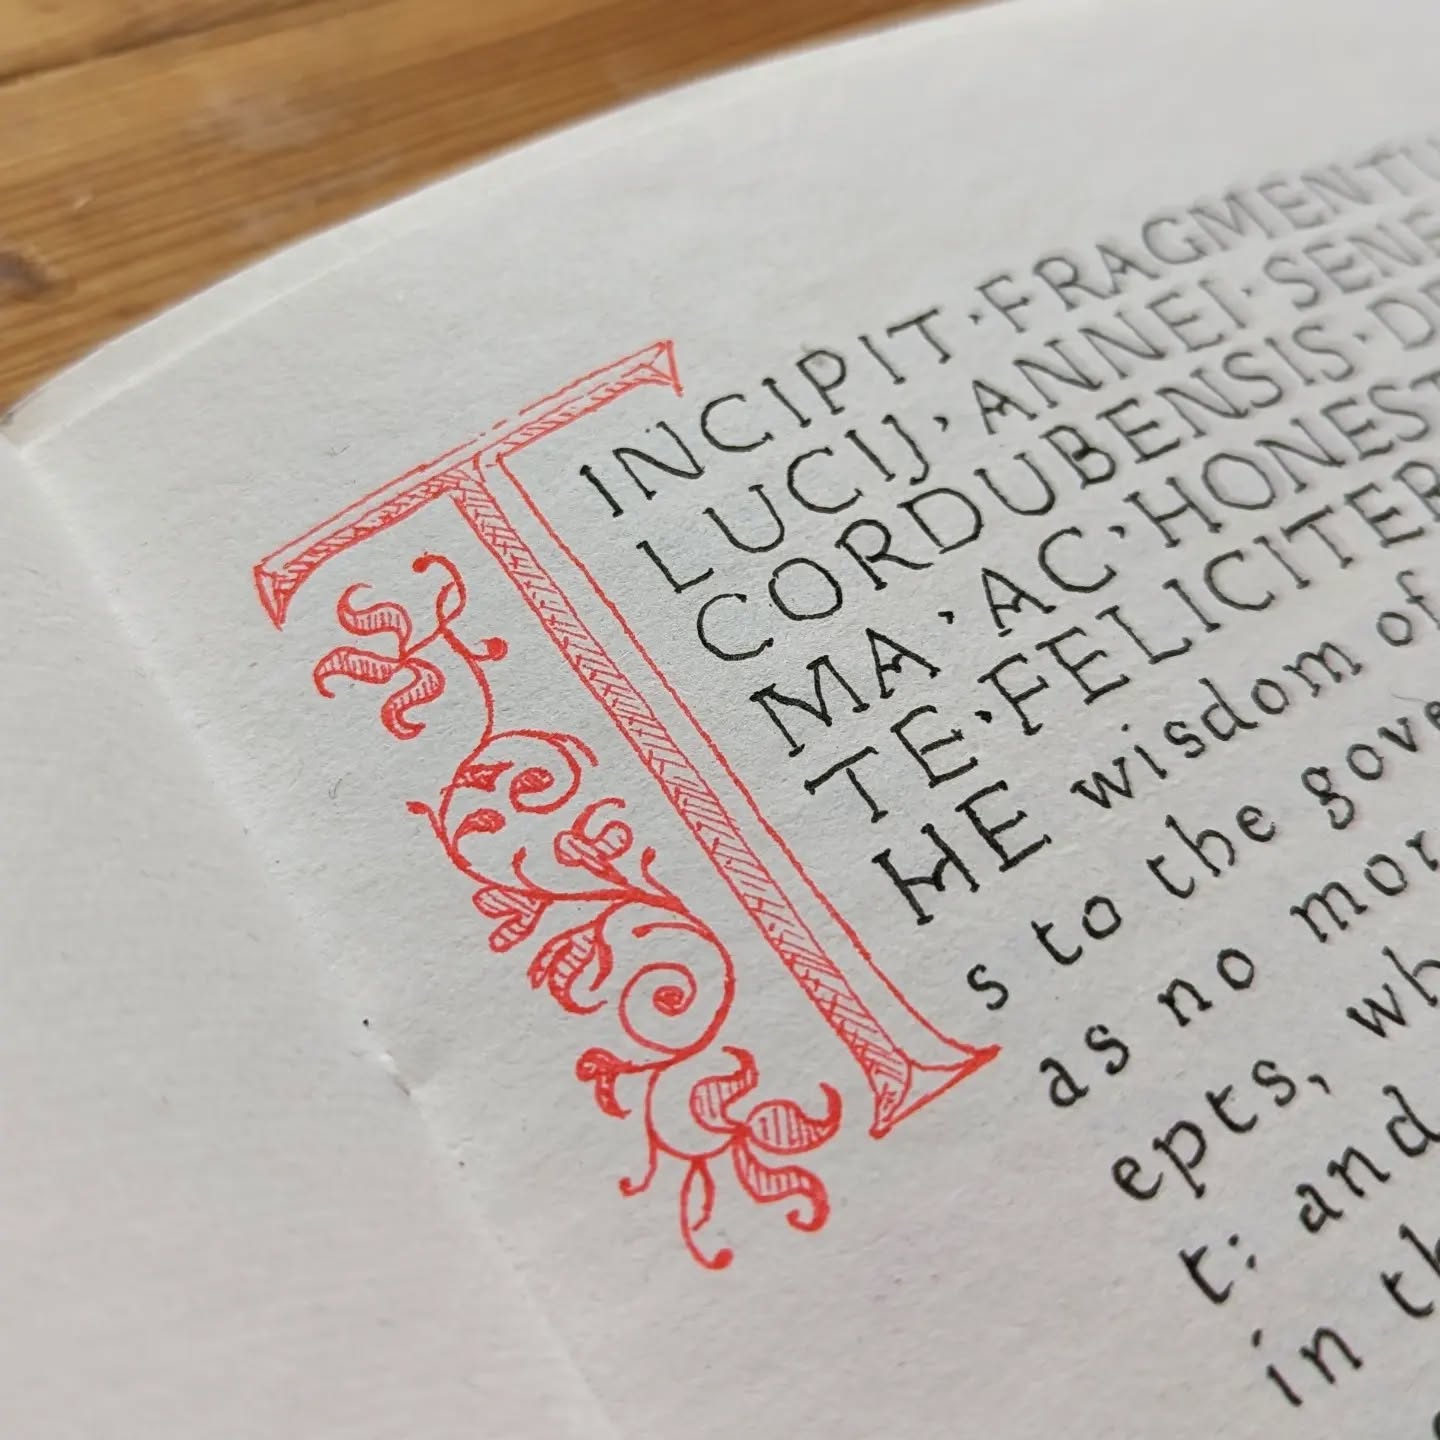 INCIPIT · FRAGMENTU
LUCIJ · ANNEI · SENE
CORDUBENSIS · DE
MA · AC · HONEST
TE · FELICITER
THE wisdom of
s to the gove
as no mor
epts, wh
t: and
in th